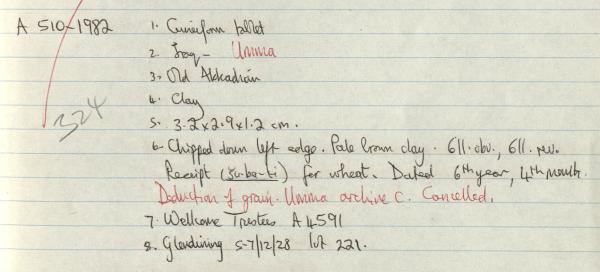 A 510-1982
1. Cuneiform tablet
2. Iraq - Umma
3. Old Akkadian
4. Clay
5. 3.2 x 2.9 x 1.2 cm.
6. Chipped down left edge. Pale brown clay. 6ll. obv., 6ll. rev.
Receipt (šu-ba-ti) for wheat. Dated 6th year, 4th month.
Deduction of grain. Umma archive C. Cancelled.
7. Wellcome Trustees A4591
8. Glendining 5-7/12/28 lot 221.
324